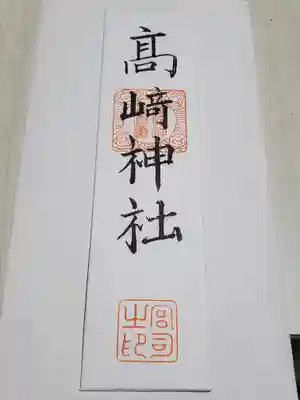 髙﨑神社
宮司之印